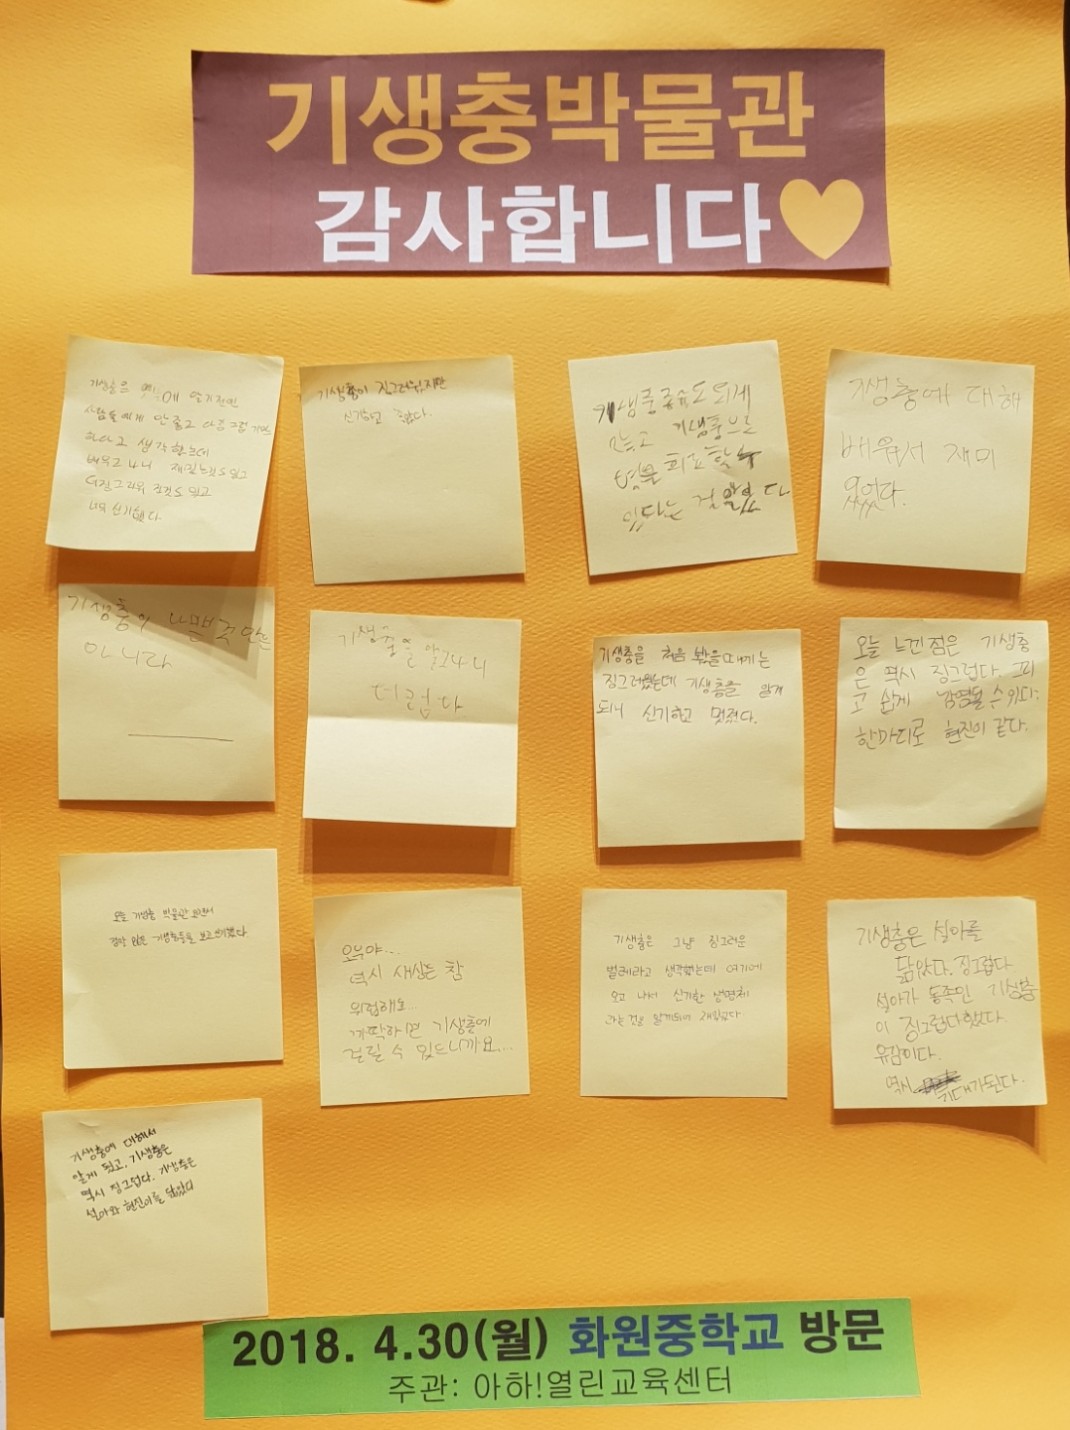 기생충박물관
감사합니다♥
기생충은
사람들에게 안 좋고
하다고 생각했는데
배우고 나니
기생충이 징그러웠지만
신기하고 좋았다.
기생충으로
있다는
기생충에 대해
배워서 재미
있었다.
기생충이 나쁜 것만은
아니라
기생충을 알고나니
더럽다
기생충을 처음 봤을때에는
징그러웠는데 기생충을 알게
되니 신기하고 멋졌다.
오늘 느낀 점은 기생충
은 역시 징그럽다. 그리
고 쉽게 감염될 수 있다.
한마디로 현진이 같다.
오늘 기생충 박물관 와서
많은 기생충들을 보고
오우야...
역시 세상은 참
위험해요
까딱하면 기생충에
걸릴 수 있으니까요...
기생충은 그냥 징그러운
벌레라고 생각했는데 여기에
오고 나서 신기한 생명체
라는 것을 알게되어 재밌었다
기생충은 설아를
닮았다. 징그럽다
설아가 동족인 기생충
이 징그럽다했다.
유감이다.
역시 기대가된다.
기생충에 대해서
알게 됐고, 기생충은
역시 징그럽다. 기생충은
설아와 현진이를 닮았다
2018. 4.30(월) 화원중학교 방문
주관: 아하!열린교육센터